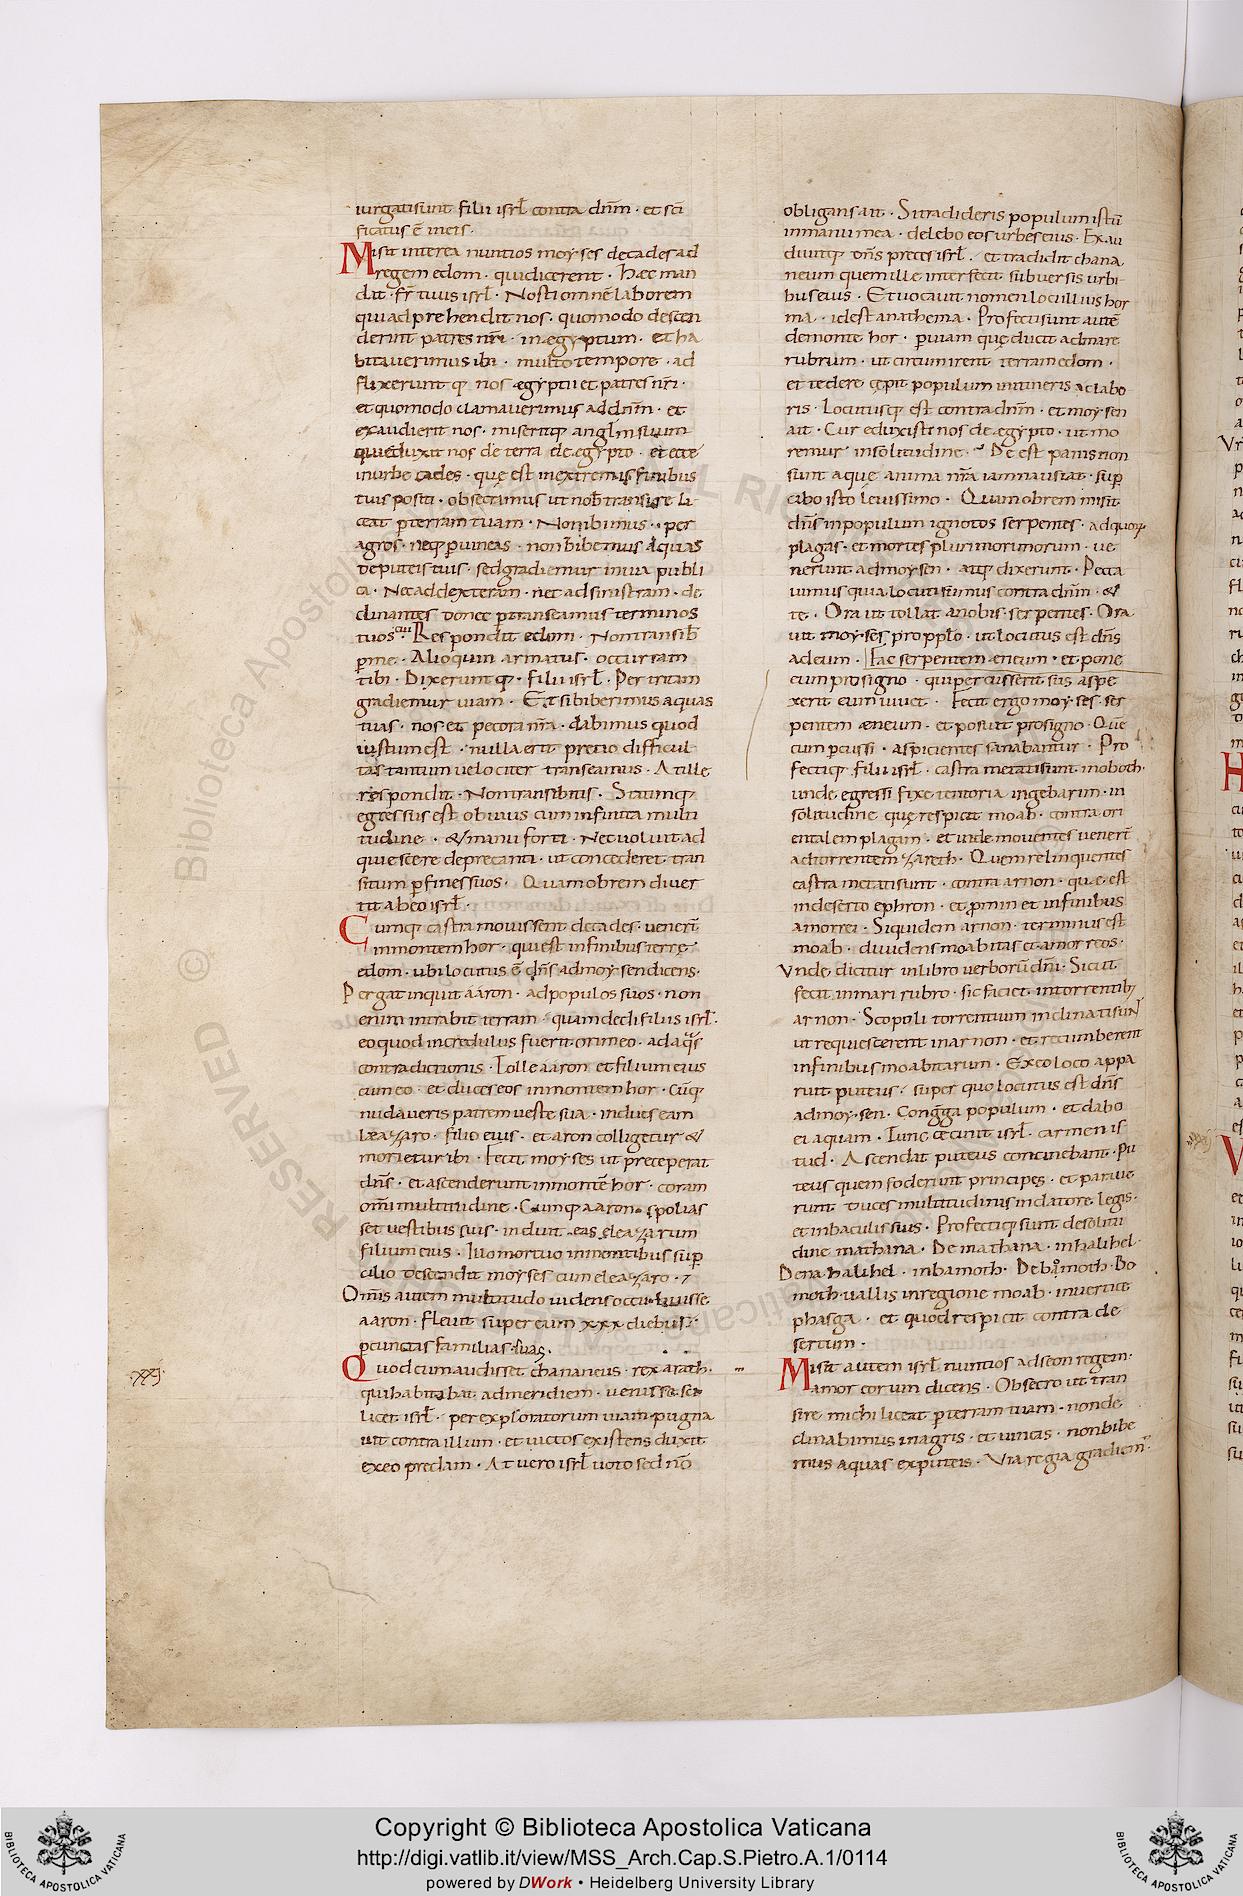 iurgati sunt filii isrł contra dnm̄ · et sci
ficatus ē in eis ·
Misit interea nuntios moyses de cades ad
regem edom · qui dicerent · Hæc man
dat · fr̄ tuus isrł · Nosti omnē laborem
qui adprehendit nos · quomodo descen
derint patres nr̄i · in ægyptum · et ha
bitaverimus ibi · multo tempore · ad
flixeruntq; nos ægyptii et patres nr̄i ·
et quomodo clamaverimus ad dnm̄ · et
exaudierit nos · miseritq; anglm̄ suum
qui eduxit nos de terra de egypto · et ecce
in urbe cades · quę est in extremis finibus
tuis positi · obsecramus ut nob̄ transire li
ceat p̄ terram tuam · Non ibimus · per
agros · neq; p̄ vineas · non bibemus aquas
de puteis tuis · sed gradiemur in via publi
ca · Nec ad dexteram · nec ad sinistram · de
clinantes donec p̄transeamus terminos
tuos · Cui Respondit edom · Non transib̄
p̄ me · Alioquin armatus · occurram
tibi · Dixeruntq; · filii isrł · Per tritam
gradiemur viam · Et si biberimus aquas
tuas · nos et pecora nr̄a · dabimus quod
iustum est · nulla erit precio difficul
tas tantum velociter transeamus · At ille
respondit · Non transibitis · Statimq;
egressus est obvius cum infinita multi
tudine · & manu forti · Nec voluit ad
quiescere deprecanti · ut concederet tran
situm p̄ fines suos · Quamobrem diver
tit ab eo isrł ·
Cumq; castra movissent de cades · venert̄
in montem hor · qui est in finibus terrę
edom · ubi locutus ē dn̄s ad moysen dicens ·
Pergat inquit aaron · ad populos suos · non
enim intrabit terram · quam dedi filiis isrł ·
eo quod incredulus fuerit ori meo · ad aq̄s
contradictionis · Tolle aaron et filium eius
cum eo · et duces eos in montem hor · Cūq;
nudaveris patrem veste sua · indues eam
leazaro · filio eius · et aron colligetur &
morietur ibi · Fecit moyses ut preceperat
dn̄s · et ascenderunt in montē hor · coram
omī multitudine · Cumq; aaron · spolias
set vestibus suis · induit eas eleazarum
filium eius · Illo mortuo in montibus sup̄
cilio descendit moyses cum eleazaro · 7
Omīs autem multitudo videns occubuisse
aaron · flevit super eum xxx diebus ·
p̄ cunctas familias suas ·
xxj
Quod cum audisset chananeus · rex arath ·
qui habitabat ad meridiem · venisse sci
licet isrł · per exploratorum viam · pugna
vit contra illum · et victos existens duxit
ex eo predam · At vero isrł voto se dnō
obligans ait · Si tradideris populum istū
in manu mea · delebo eos urbes eius · Exau
divitq; dn̄s preces isrł · et tradidit chana
neum quem ille interfecit subversis urbi
bus eius · Et vocavit nomen loci illius hor
ma · id est anathema · Profecti sunt autē
de monte hor · p̄ viam quę ducit ad mare
rubrum · ut circumirent terram edom ·
et tedere cępit populum itineris ac labo
ris · Locutusq; est contra dnm̄ · et moysen
ait · Cur eduxisti nos de ægypto · ut mo
remur in solitudine · Deest panis non
sunt aque anima nr̄a iam nausiat · sup̄
cabo isto levissimo · Quamobrem misit
dn̄s in populum ignotos serpentes · ad quorum
plagas · et mortes plurimorum · ve
nerunt ad moysen · atq; dixerunt · Pecca
vimus quia locuti sumus contra dnm̄ · &
te · Ora ut tollat a nobis · serpentes · Ora
vit moyses pro popło · ut locutus est dn̄s
ad eum · Fac serpentem eneum · et pone
eum pro signo · qui percusserit sūs aspe
xerit eum vivet · Fecit ergo moyses · ser
pentem æneum · et posuit pro signo · Quē
cum p̄cussi · aspicientes sanabantur · Pro
fectiq; filii isrł · castra metati sunt in oboth ·
unde egressi fixe tentoria in gebarim · in
solitudine quę respicit moab · contra ori
entalem plagam · et inde moventes venert̄
ad torrentem zareth · Quem relinquentes
castra metati sunt · contra arnon · quę est
in deserto ephron · et p̄min et in finibus
amorrei · Siquidem arnon · terminus est
moab · dividens moabitas et amorreos ·
Unde dicitur in libro verborū dnī · Sicut
fecit in mari rubro · sic faciet in torrentib;
arnon · Scopuli torrentium inclinati sunt
ut requiescerent in arnon · et recumberent
in finibus moabitarum · Ex eo loco appa
ruit puteus · super quo locutus est dn̄s
ad moysen · Congga populum · et dabo
ei aquam · Tunc cecinit isrł · carmen is
tud · Ascendat puteus concinebant · Pu
teus quem foderunt principes · et parave
runt duces multitudinis in datore legis ·
et in baculis suis · Profectiq; sunt de solitu
dine mathana · De mathana · in halihel ·
De nahalihel · in bamoth · De bamoth · Ba
moth · vallis in regione moab · in vertice
phasga · et quod respicit contra de
sertum ·
Misit autem isrł nuntios ad seon regem
amorreorum dicens · Obsecro ut tran
sire michi liceat p̄ terram tuam · non de
clinabimus in agris · et vineas · non bibe
mus aquas ex puteis · Via regia gradiem̄
© Biblioteca Apostolica Vaticana ALL RIGHTS RESERVED
Copyright © Biblioteca Apostolica Vaticana
http://digi.vatlib.it/view/MSS_Arch.Cap.S.Pietro.A.1/0114
powered by DWork • Heidelberg University Library
BIBLIOTECA APOSTOLICA VATICANA
BIBLIOTECA APOSTOLICA VATICANA